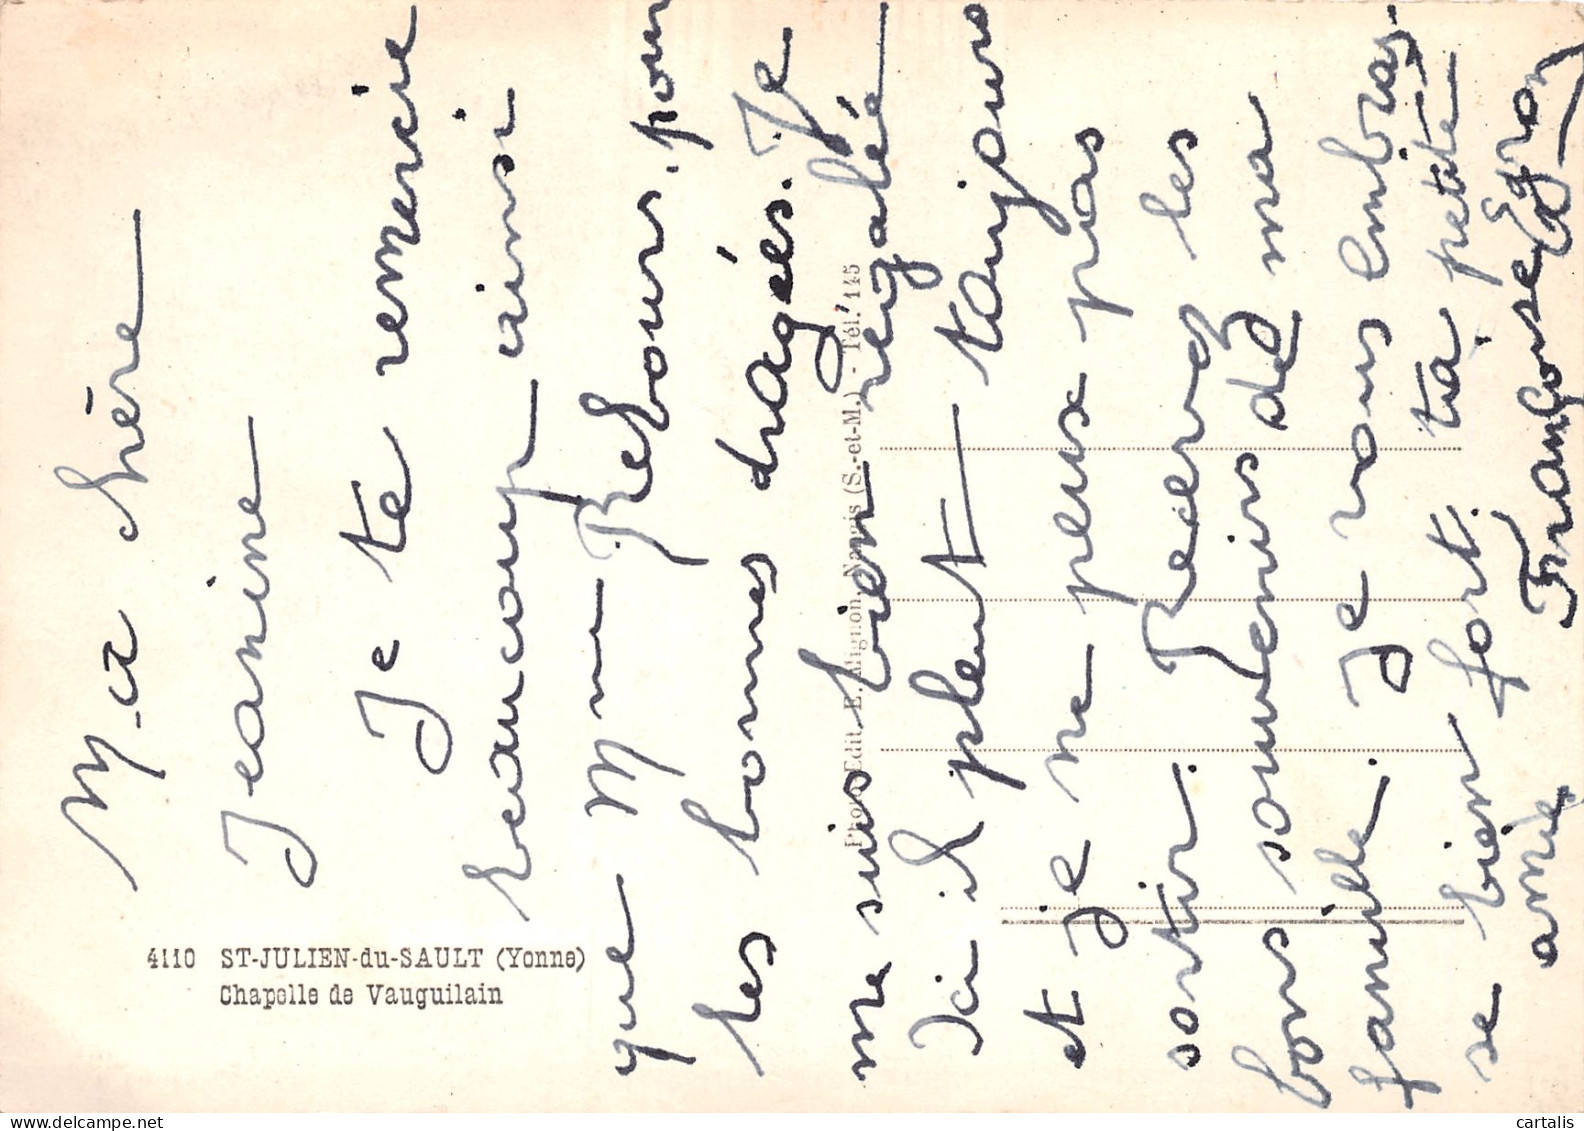 Ma chère
Jeanine
Je te remercie
beaucoup ainsi
que Mme Rebours, pour
les bonnes dragées. Je
me suis bien régalée
Ici il pleut toujours
et je ne peux pas
sortir. Recevez les
bons souvenirs de ma
famille. Je vous embras-
se bien fort. ta petite
amie Françoise
4110 ST-JULIEN-du-SAULT (Yonne)
Chapelle de Vauguilain
Photo Edit. E. Mignon, Nangis (S.-et-M.) - Tél. 145
cartalis